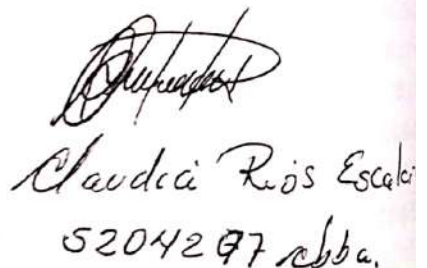 Claudia Rios Escale
5204277 cbba.